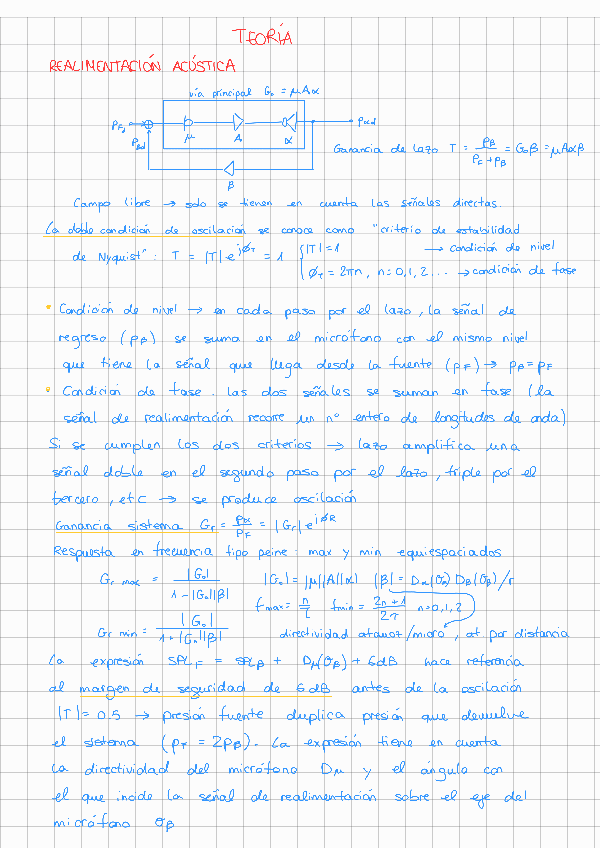 TEORÍA
REALIMENTACIÓN ACÚSTICA
vía principal G₀ = μAα
p_F
p_βd
μ
A
α
p_αd
β
Ganancia de lazo T = p_β / (p_F + p_β) = G₀β = μAαβ
Campo libre → solo se tienen en cuenta las señales directas.
La doble condición de oscilación se conoce como "criterio de estabilidad
de Nyquist": T = |T| e^{jΦ_T} = 1 { |T| = 1 → condición de nivel
Φ_T = 2πn, n = 0,1,2... → condición de fase
• Condición de nivel → en cada paso por el lazo, la señal de
regreso (p_β) se suma en el micrófono con el mismo nivel
que tiene la señal que llega desde la fuente (p_F) → p_β = p_F
• Condición de fase. Las dos señales se suman en fase (la
señal de realimentación recorre un nº entero de longitudes de onda)
Si se cumplen los dos criterios → lazo amplifica una
señal doble en el segundo paso por el lazo, triple por el
tercero, etc → se produce oscilación
Ganancia sistema G_r = p_α / p_F = |G_r| e^{jΦ_R}
Respuesta en frecuencia tipo peine: max y min equiespaciados
G_r max = |G₀| / (1 - |G₀||β|) |G₀| = |μ||A||α| |β| = D_α(θ_α) D_β(θ_β)/r
f_max = n/τ f_min = (2n+1)/2τ n=0,1,2
G_r min = |G₀| / (1 + |G₀||β|) directividad altavoz/micro, at. por distancia
La expresión SPL_F = SPL_β + D_μ(θ_β) + 6dB hace referencia
al margen de seguridad de 6 dB antes de la oscilación
|T| = 0.5 → presión fuente duplica presión que devuelve
el sistema (p_F = 2p_β). La expresión tiene en cuenta
la directividad del micrófono D_μ y el ángulo con
el que incide la señal de realimentación sobre el eje del
micrófono θ_β